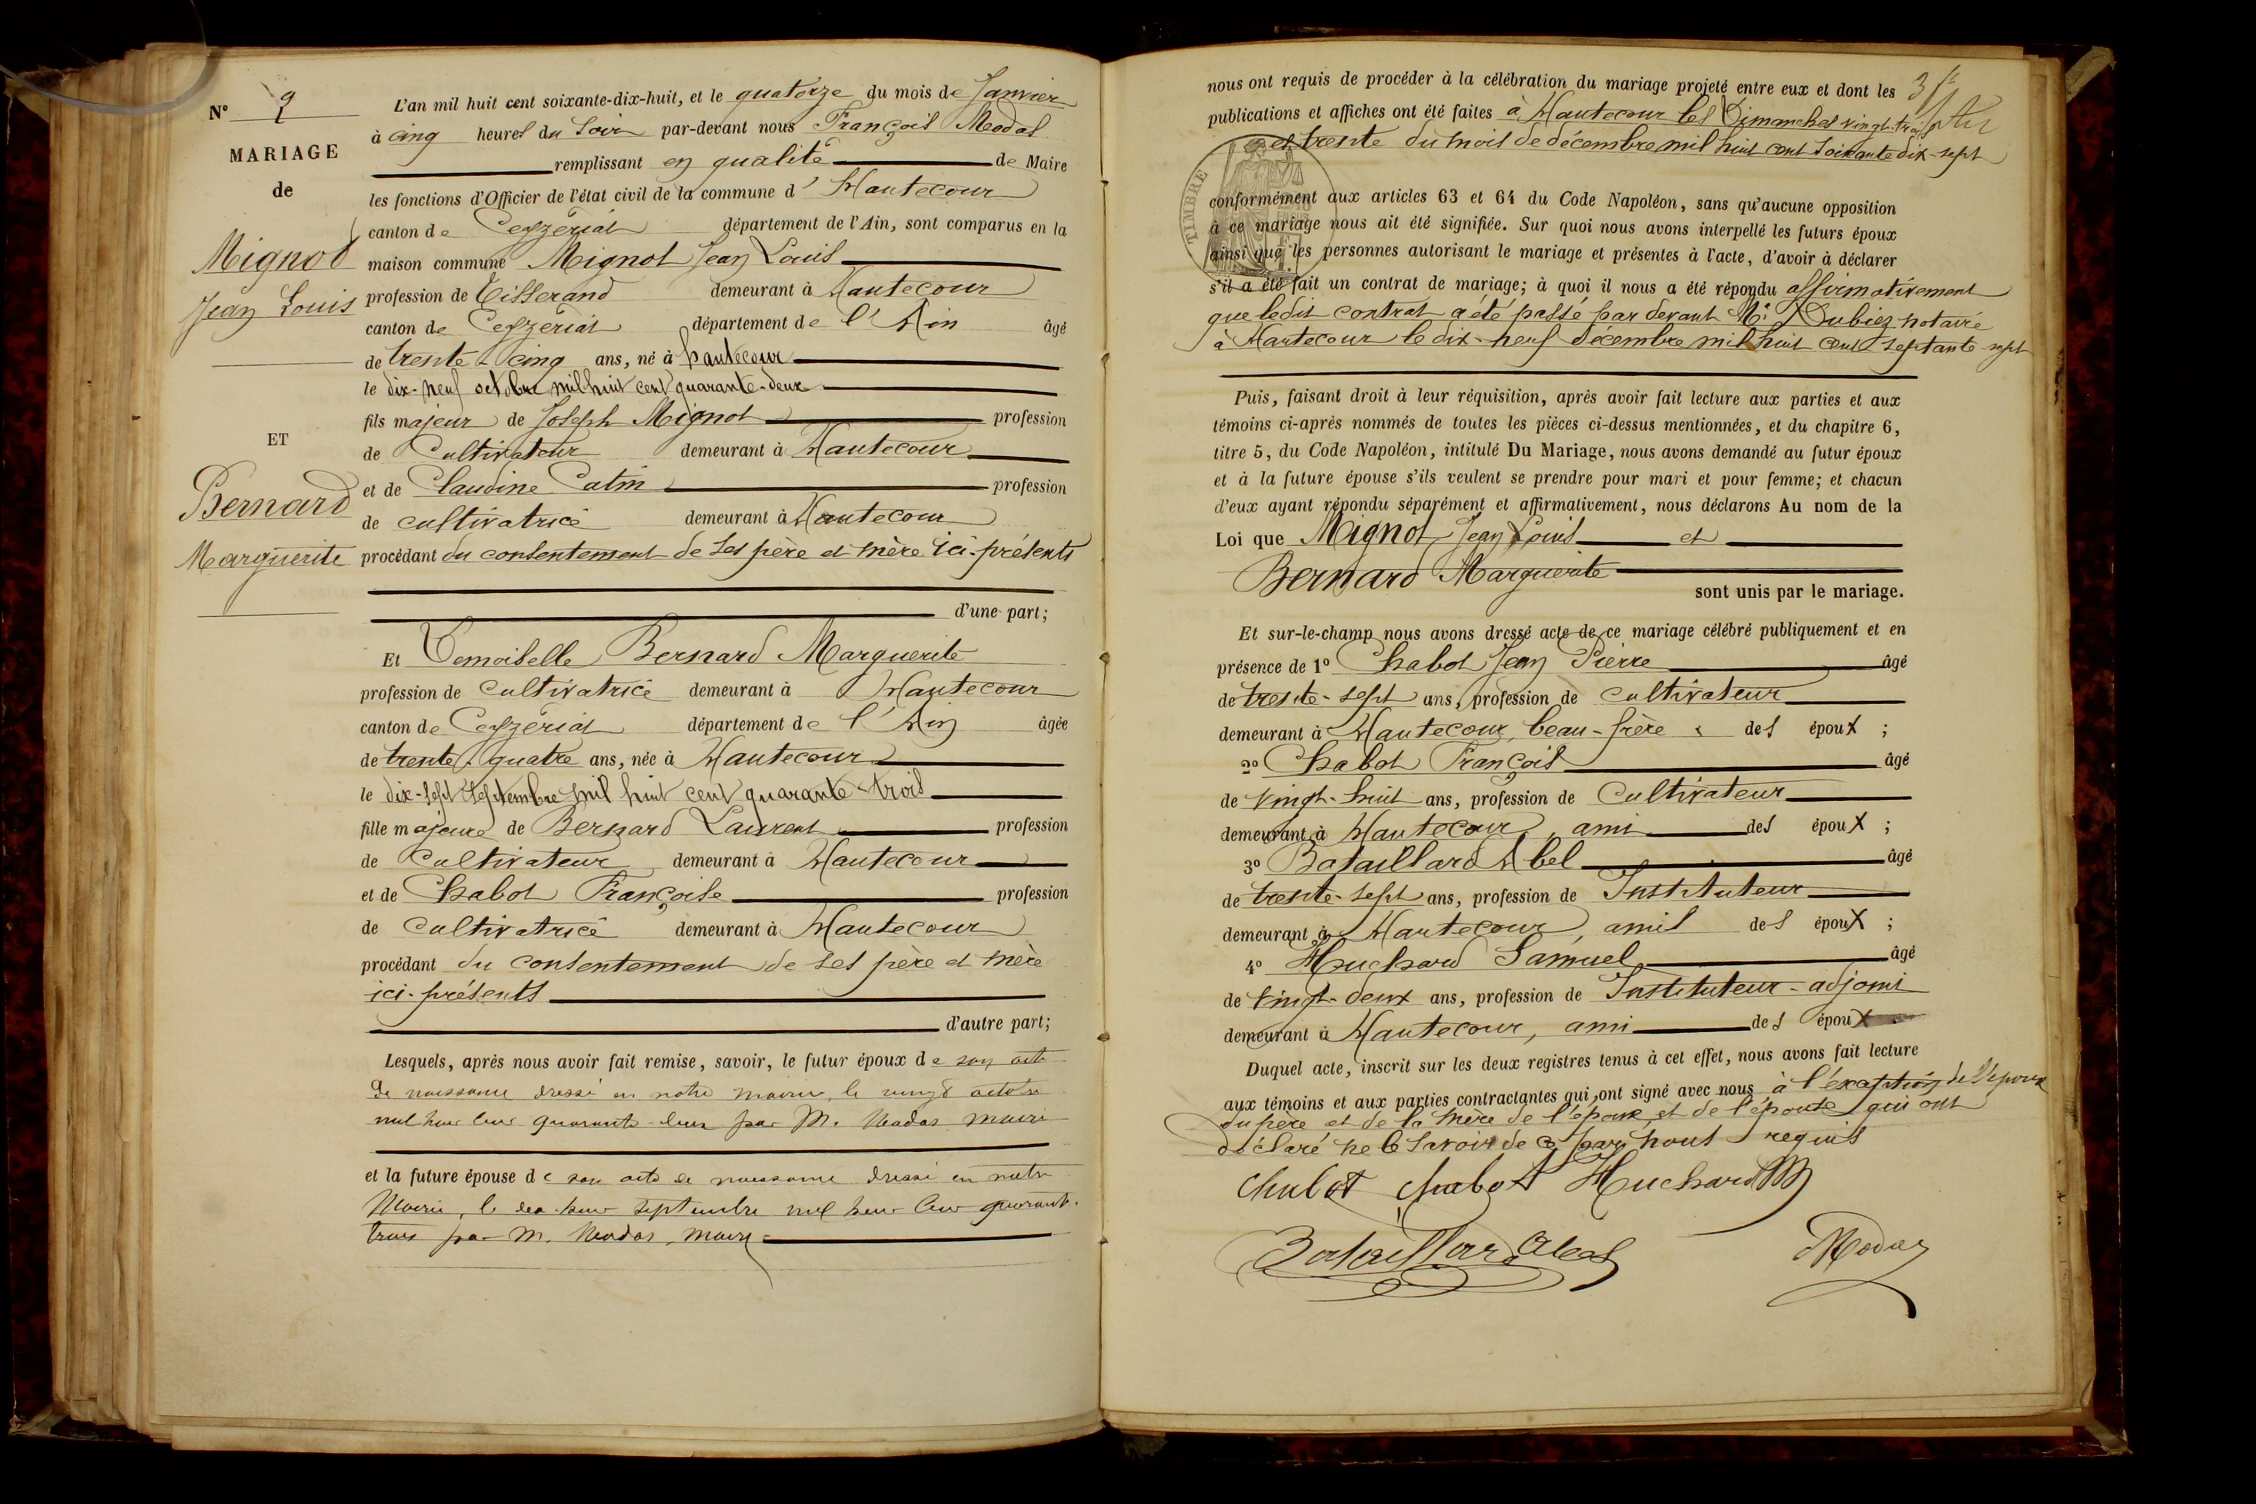 N° 2
MARIAGE
de
Mignot
Jean Louis
ET
Bernard
Marguerite
L'an mil huit cent soixante-dix-huit, et le quatorze du mois de Janvier
à cinq heures du Soir par-devant nous François Modas
remplissant en qualité de Maire
les fonctions d'Officier de l'état civil de la commune d' Hautecour
canton de Ceyzériat département de l'Ain, sont comparus en la
maison commune Mignot Jean Louis
profession de Tisserand demeurant à Hautecour
canton de Ceyzériat département de l'Ain âgé
de trente-cinq ans, né à hautecour
le dix-neuf octobre mil huit cent quarante-deux
fils majeur de Joseph Mignot profession
de Cultivateur demeurant à Hautecour
et de Claudine Catin profession
de cultivatrice demeurant à Hautecour
procédant du consentement de ses père et mère ici-présents
d'une part;
Et Demoiselle Bernard Marguerite
profession de Cultivatrice demeurant à Hautecour
canton de Ceyzériat département de l'Ain âgée
de trente-quatre ans, née à Hautecour
le dix-sept Septembre mil huit cent quarante-trois
fille majeure de Bernard Laurent profession
de Cultivateur demeurant à Hautecour
et de Chabot Françoise profession
de Cultivatrice demeurant à Hautecour
procédant du consentement de ses père et mère
ici-présents
d'autre part;
Lesquels, après nous avoir fait remise, savoir, le futur époux de son acte
de naissance dressé en notre mairie, le vingt octobre
mil huit cent quarante-deux par M. Modas maire
et la future épouse de son acte de naissance dressé en notre
Mairie, le dix-huit septembre mil huit cent quarante-
trois par M. Modas, maire
nous ont requis de procéder à la célébration du mariage projeté entre eux et dont les
publications et affiches ont été faites à Hautecour les Dimanches vingt-trois
et trente du mois de décembre mil huit cent soixante dix-sept
TIMBRE
conformément aux articles 63 et 64 du Code Napoléon, sans qu'aucune opposition
à ce mariage nous ait été signifiée. Sur quoi nous avons interpellé les futurs époux
ainsi que les personnes autorisant le mariage et présentes à l'acte, d'avoir à déclarer
s'il a été fait un contrat de mariage; à quoi il nous a été répondu affirmativement
que ledit contrat a été passé par devant Me Dubiez notaire
à Hautecour le dix-neuf décembre mil huit cent septante-sept
Puis, faisant droit à leur réquisition, après avoir fait lecture aux parties et aux
témoins ci-après nommés de toutes les pièces ci-dessus mentionnées, et du chapitre 6,
titre 5, du Code Napoléon, intitulé Du Mariage, nous avons demandé au futur époux
et à la future épouse s'ils veulent se prendre pour mari et pour femme; et chacun
d'eux ayant répondu séparément et affirmativement, nous déclarons Au nom de la
Loi que Mignot Jean Louis et
Bernard Marguerite
sont unis par le mariage.
Et sur-le-champ nous avons dressé acte de ce mariage célébré publiquement et en
présence de 1° Chabot Jean Pierre âgé
de trente-sept ans, profession de cultivateur
demeurant à Hautecour, beau-frère des époux ;
2° Chabot François âgé
de vingt-huit ans, profession de Cultivateur
demeurant à Hautecour, ami des époux ;
3° Bataillard Abel âgé
de trente-sept ans, profession de Instituteur
demeurant à Hautecour, amis des époux ;
4° Huchard Samuel âgé
de vingt-deux ans, profession de Instituteur-adjoint
demeurant à Hautecour, ami des époux
Duquel acte, inscrit sur les deux registres tenus à cet effet, nous avons fait lecture
aux témoins et aux parties contractantes qui ont signé avec nous à l'exception de l'époux
du père et de la mère de l'époux et de l'épouse qui ont
déclaré ne le savoir de ce par nous requis
Chabot Chabot Huchard
Bataillard Abel Modas